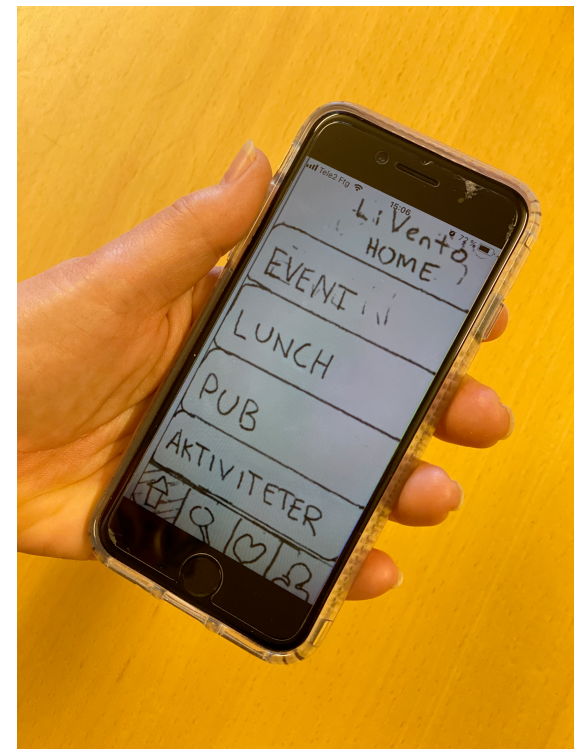 Tele2 Ftg 15:06 72 %
LiVento
HOME
EVENT
LUNCH
PUB
AKTIVITETER